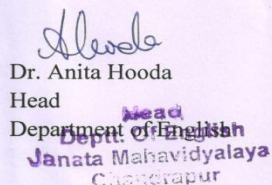 Dr. Anita Hooda
Head
Department of English
Head
Deptt. Of English
Janata Mahavidyalaya
Chandrapur